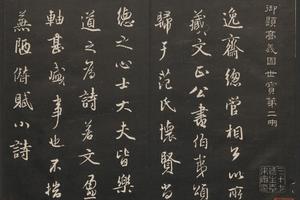 御題高義園世寶第二冊
逸齋總管相公以所
藏文正公書伯夷頌
歸于范氏懷賢尚
德之心士大夫皆樂
道之為詩若文盈
軸甚盛事也不揣
蕪陋偕賦小詩